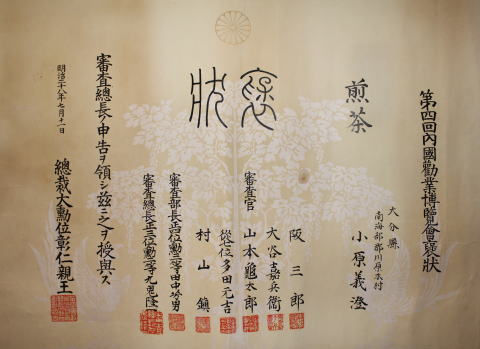 第四回內國勸業博覽會褒狀
大分縣
南海部郡川原木村
小原義澄
煎茶
褒狀
審査官
阪三郎
大谷嘉兵衞
山本龜太郎
從七位多田元吉
村山鎭
審査部長 田中芳男
審査總長 九鬼隆
審査總長ノ申告ヲ領シ茲ニ之ヲ授與ス
明治二十八年七月十一日
總裁大勳位彰仁親王